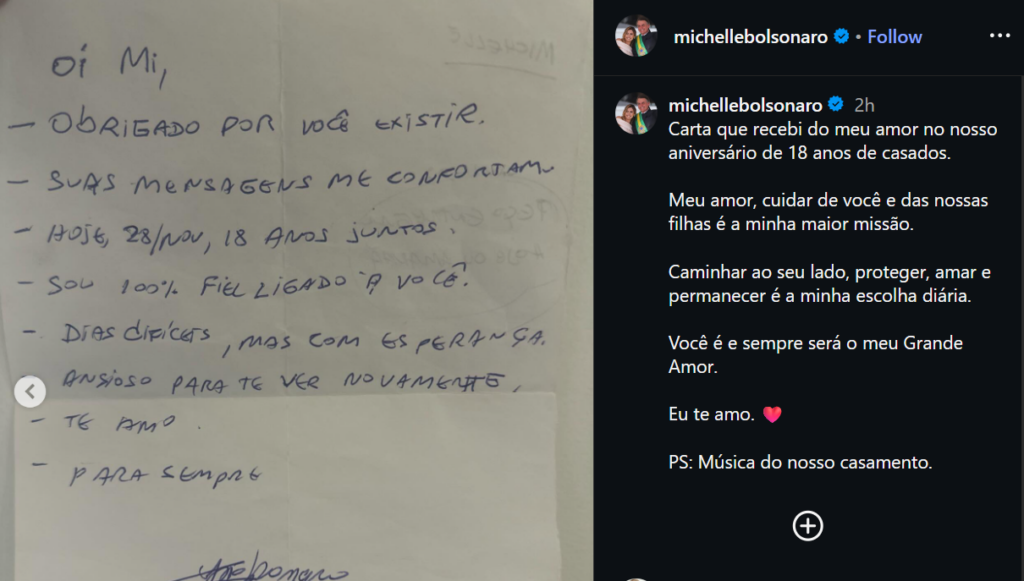 Oi Mi,
- OBRIGADO POR VOCÊ EXISTIR.
- SUAS MENSAGENS ME CONFORTAM
- HOJE, 28/NOV, 18 ANOS JUNTOS.
- SOU 100% FIEL LIGADO A VOCÊ.
- DIAS DIFÍCEIS, MAS COM ESPERANÇA.
ANSIOSO PARA TE VER NOVAMENTE.
- TE AMO.
- PARA SEMPRE
MICHELLE
michellebolsonaro • Follow
michellebolsonaro 2h
Carta que recebi do meu amor no nosso
aniversário de 18 anos de casados.
Meu amor, cuidar de você e das nossas
filhas é a minha maior missão.
Caminhar ao seu lado, proteger, amar e
permanecer é a minha escolha diária.
Você é e sempre será o meu Grande
Amor.
Eu te amo. ❤️
PS: Música do nosso casamento.